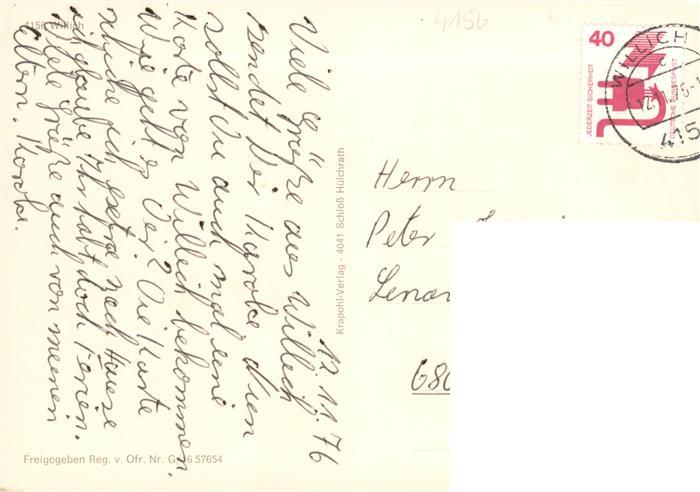 4156 Willich
4156
12.11.76
Viele Grüße aus Willich
sendet Dir Nun
sollst Du auch mal eine
Karte von Willich bekommen.
Wie geht es Dir? Die Karte
schicke ich extra nach Hause
ich glaube Ihr habt doch Ferien.
Viele Grüße auch von meinen
Eltern.
Krapohl-Verlag - 4041 Schloß Hülchrath
Freigegeben Reg. v. Ofr. Nr. G 16 57654
40
JEDERZEIT SICHERHEIT
DEUTSCHE BUNDESPOST
WILLICH
415
Herrn
Peter
Lenau
680